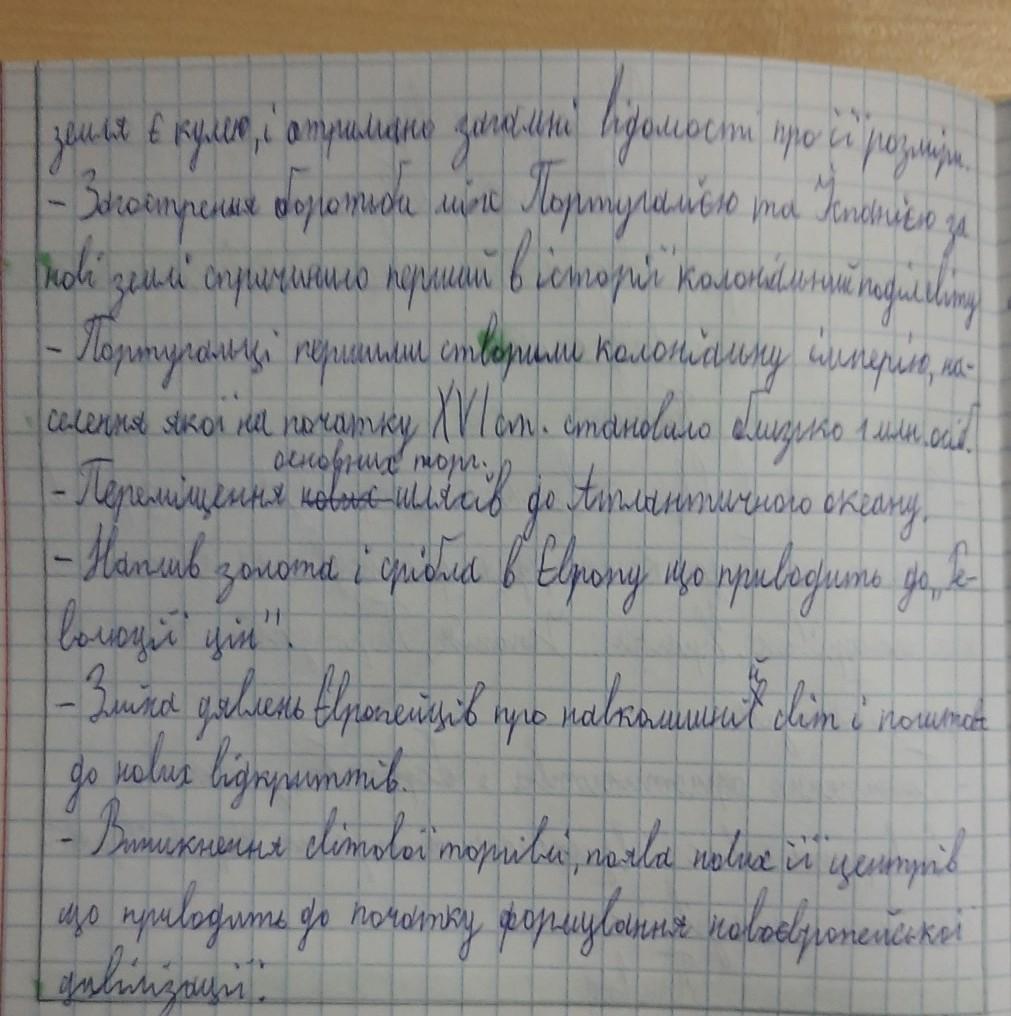 земля є кулею, і отримано загальні відомості про її розміри.
- Загострення боротьби між Португалією та Іспанією за
нові землі спричинило перший в історії колоніальний поділ світу
- Португальці першими створили колоніальну імперію, на-
селення якої на початку XVI ст. становило близько 1 млн. осіб.
основних торг.
- Переміщення нових шляхів до Атлантичного океану.
- Наплив золота і срібла в Європу що приводить до „Ре-
волюції цін".
- Зміна уявлень Європейців про навколишній світ і поштовх
до нових відкриттів.
- Виникнення світової торгівлі, поява нових її центрів
що приводить до початку формування новоєвропейської
цивілізації.